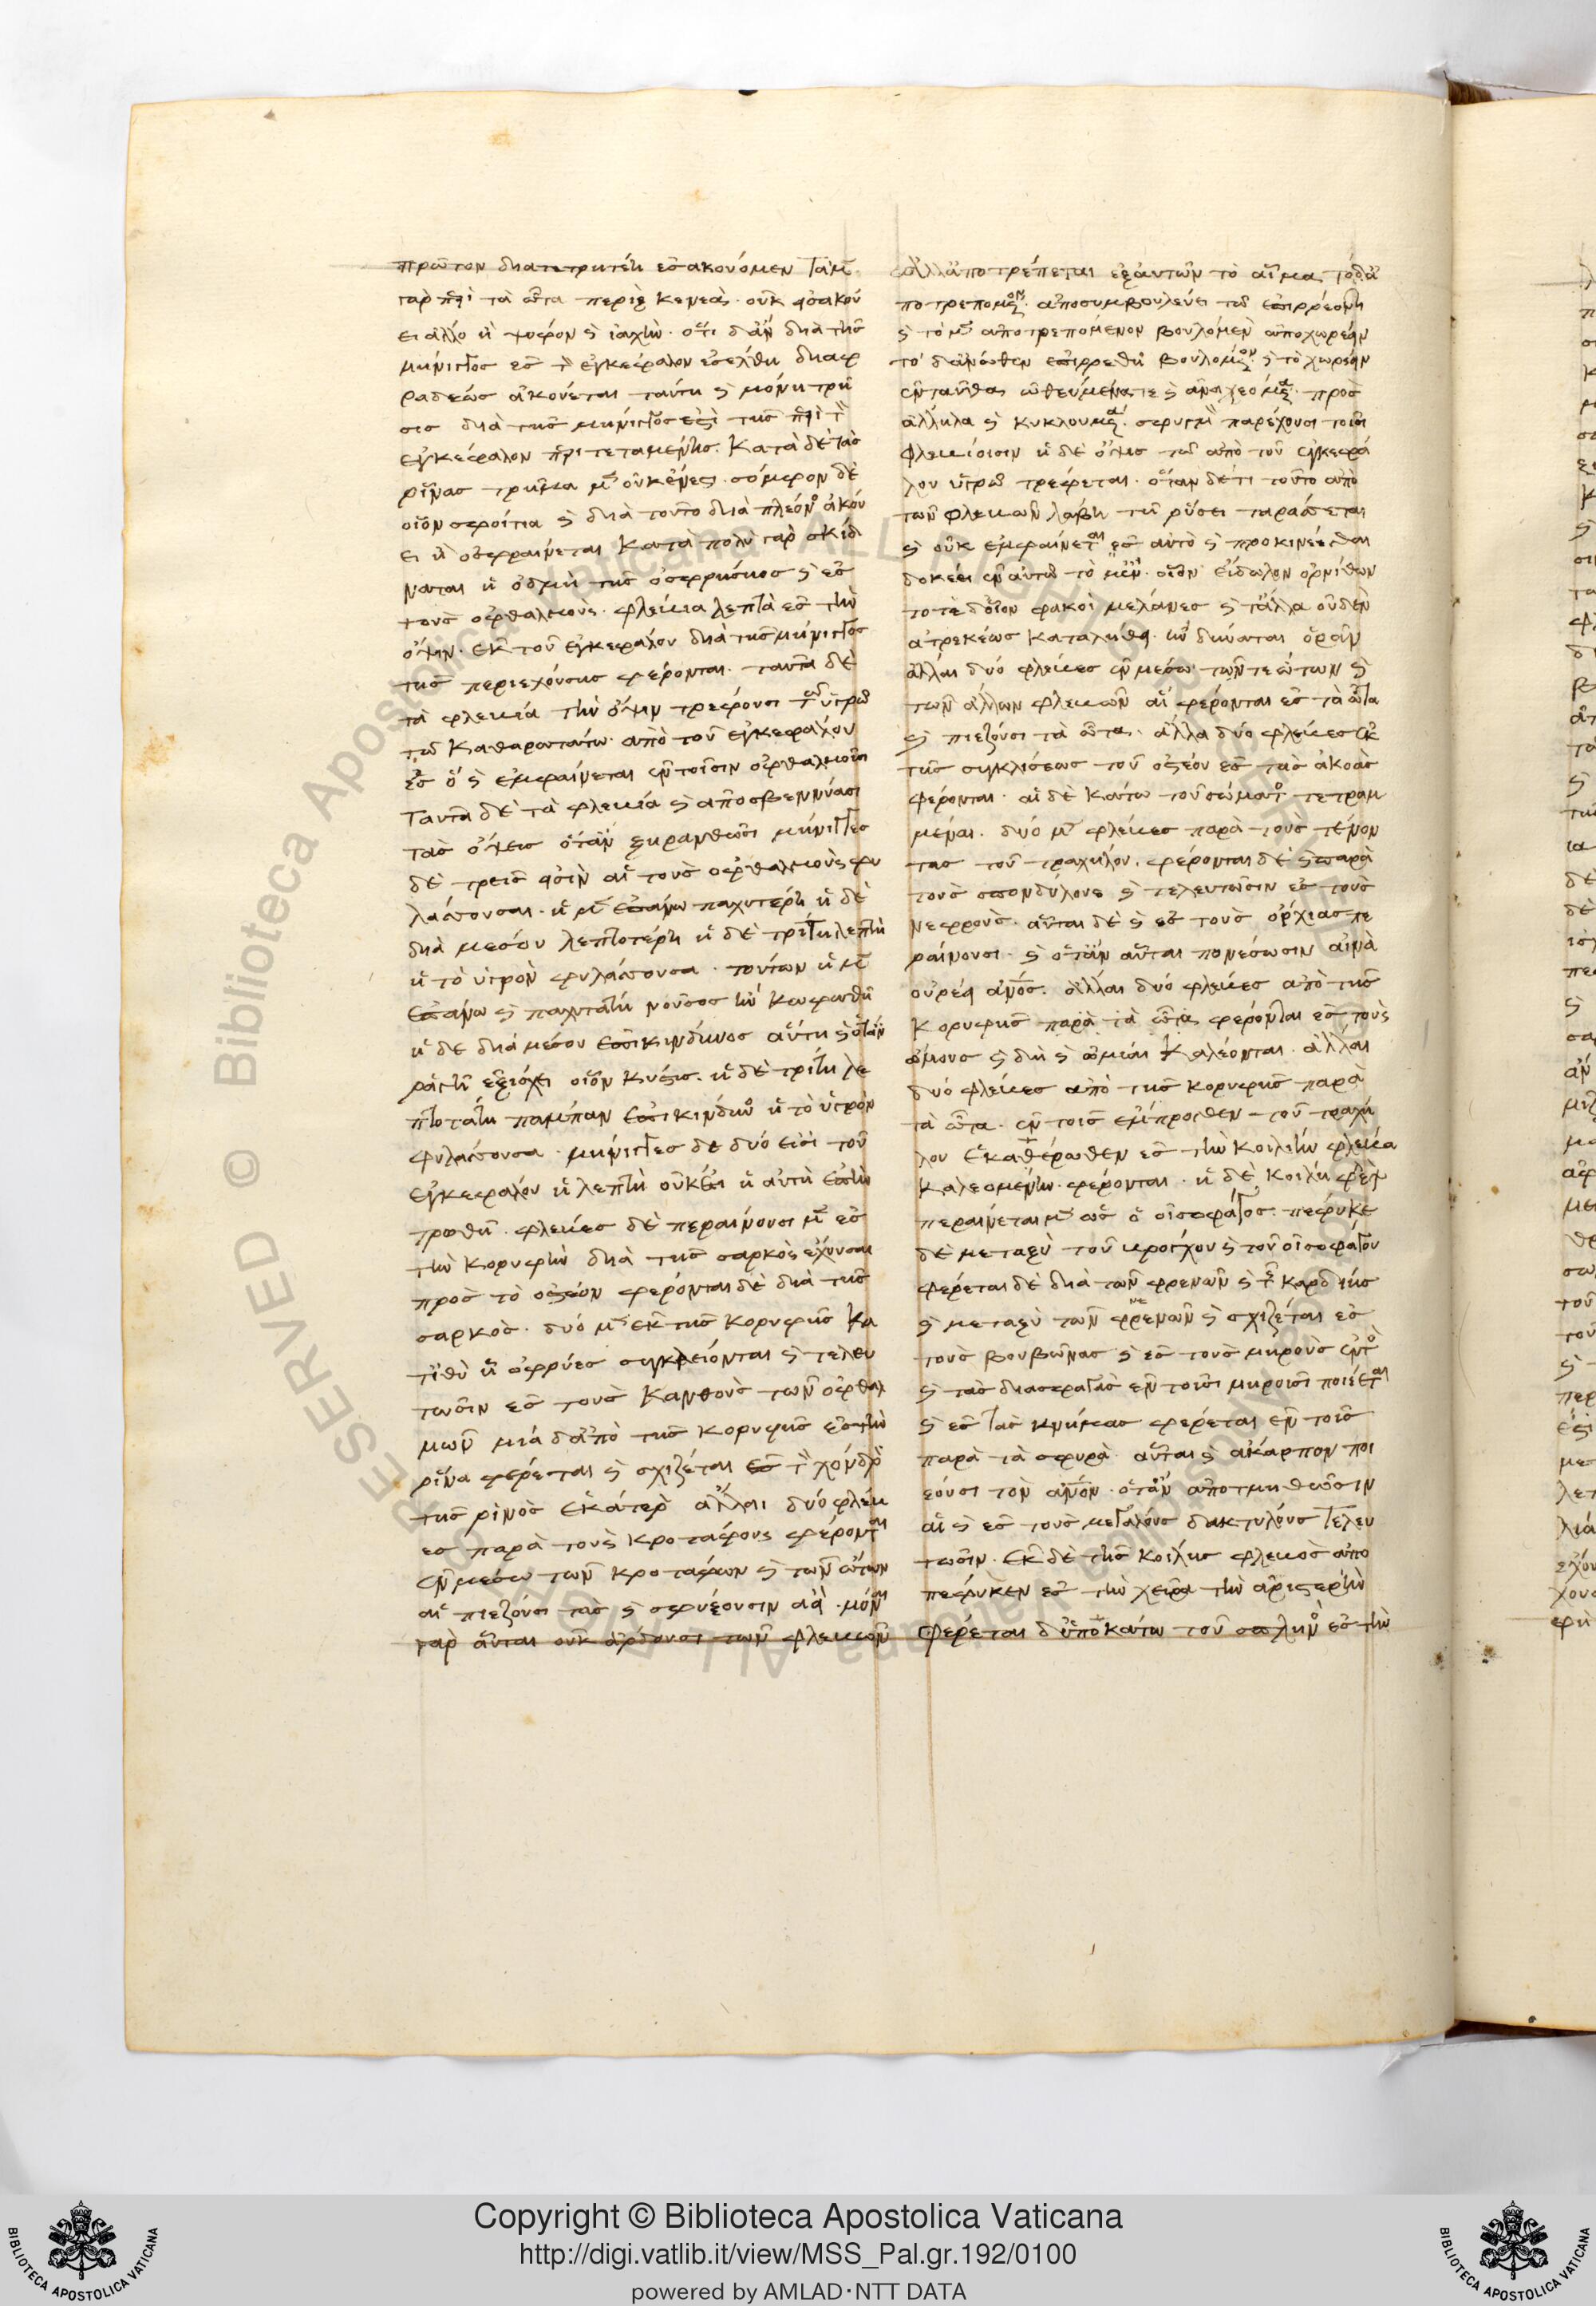 πρῶτον διατετρητέη ἐσακούομεν τὰ μὲν
γὰρ περὶ τὰ ὦτα περὶξ κενεὰ. οὐκ φσακού
ει ἄλλο ἢ ψόφον καὶ ἰαχὴν. ὅτι δ' ἂν διὰ τῆς
μήνιγγος ἐς τὸν ἐγκέφαλον ἐσέλθη διαφ
ραδέως ἀκούεται ταύτη καὶ μόνη τρῆ
σις διὰ τῆς μήνιγγος ἐστὶ τῆς περὶ τὸν
ἐγκέφαλον περιτεταμένης. κατὰ δὲ τὰς
ῥῖνας τρῆμα μὲν οὐκ ἔνεστι. σόμφον δὲ
οἷον σπογγία καὶ διὰ τοῦτο διὰ πλέονος ἀκού
ει ἢ ὀσφραίνεται κατὰ πολὺ γὰρ σκίδ
ναται ἡ ὀδμὴ τῆς ὀσφρήσιος καὶ ἐς
τοὺς ὀφθαλμοὺς. φλέβια λεπτὰ ἐς τὴν
ὄψιν. ἐκ τοῦ ἐγκεφάλου διὰ τῆς μήνιγγος
τῆς περιεχούσης φέρονται. ταῦτα δὲ
τὰ φλεβία τὴν ὄψιν τρέφουσι τῷ ὑγρῷ
τῷ καθαρωτάτω. ἀπὸ τοῦ ἐγκεφάλου
ἐς ὃ καὶ ἐμφαίνεται ἐν τοῖσιν ὀφθαλμοῖσι
ταῦτα δὲ τὰ φλεβία καὶ ἀποσβεννύασι
τὰς ὄψεις ὅταν ξηρανθῶσι μήνιγγες
δὲ τρεῖς εἰσὶν αἱ τοὺς ὀφθαλμοὺς φυ
λάσσουσαι. ἡ μὲν ἐπάνω παχυτέρη ἡ δὲ
διὰ μέσου λεπτοτέρη ἡ δὲ τρίτη λεπτὴ
ἡ τὸ ὑγρὸν φυλάσσουσα. τούτων ἡ μὲν
ἐπάνω καὶ παχυτάτη νοῦσος ἢν κωφωθῆ
ἡ δὲ διὰ μέσου ἐπικίνδυνος αὕτη καὶ ὅταν
ῥαγῆ ἐξίσχει οἷον κύστις. ἡ δὲ τρίτη λε
πτοτάτη πάμπαν ἐπικίνδυνος ἡ τὸ ὑγρὸν
φυλάσσουσα. μήνιγγες δὲ δύο εἰσὶ τοῦ
ἐγκεφάλου ἡ λεπτὴ οὐκέτι ἡ αὐτὴ ἐπὴν
τρωθῆ. φλέβες δὲ περαίνουσι μὲν ἐς
τὴν κορυφὴν διὰ τῆς σαρκὸς ἔχουσαι
πρὸς τὸ ὀστέον φέρονται δὲ διὰ τῆς
σαρκὸς. δύο μὲν ἐκ τῆς κορυφῆς κα
τιθὺ ᾗ ὀφρύες συγκλείονται καὶ τελευ
τῶσιν ἐς τοὺς κανθοὺς τῶν ὀφθαλ
μῶν μία δ' ἀπὸ τῆς κορυφῆς ἐς τὴν
ῥῖνα φέρεται καὶ σχίζεται ἐς τὸν χόνδρον
τῆς ῥινὸς ἑκάτερον ἄλλαι δύο φλέβ
ες παρὰ τοὺς κροτάφους φέρονται
ἐν μέσω τῶν κροτάφων καὶ τῶν ὤτων
αἳ πιέζουσι τὰς καὶ σφύζουσιν ἀεὶ. μόναι
γὰρ αὗται οὐκ ἄρδουσι τῶν φλεβῶν
ἀλλ' ἀποτρέπεται ἐξ αὐτῶν τὸ αἷμα τὸ δ' ἀ
ποτρεπόμενον. ἀποσυμβουλεύει τῷ ἐπιρρέοντι
καὶ τὸ μὲν ἀποτρεπόμενον βουλόμενον ἀποχωρέειν
τὸ δ' ἄνωθεν ἐπιρρεθῆ βουλόμενον καὶ τὸ χωρέειν
ἐνταῦθα ὠθεύμενά τε καὶ ἀναχεόμενα. πρὸς
ἄλληλα καὶ κυκλούμενα. σφυγμὸν παρέχουσι τοῖσι
φλεβίοισιν ἡ δὲ ὄψις τῷ ἀπὸ τοῦ ἐγκεφά
λου ὑγρῷ τρέφεται. ὅταν δέ τι τοῦτο ἀπὸ
τῶν φλεβῶν λάβη τῇ ῥύσει ταράσσεται
καὶ οὐκ ἐμφαίνεται ἐς αὐτὸ καὶ προκινέεσθαι
δοκέει ἐν αὐτῷ τὸ μὲν οἷον εἴδωλον ὀρνίθων
τοτὲ δ' οἷον φακοὶ μέλανες καὶ τἄλλα οὐδὲν
ἀτρεκέως κατ' ἀληθη. ἢν δύναται ὁρᾶν
ἄλλαι δύο φλέβες ἐν μέσω τῶν τε ὤτων καὶ
τῶν ἄλλων φλεβῶν αἳ φέρονται ἐς τὰ ὦτα
καὶ πιέζουσι τὰ ὦτα. ἄλλα δύο φλέβες ἐκ
τῆς συγκλίσεως τοῦ ὀστέου ἐς τὰς ἀκοὰς
φέρονται. αἱ δὲ κάτω τοῦ σώματος τετραμ
μέναι. δύο μὲν φλέβες παρὰ τοὺς τένον
τας τοῦ τραχήλου. φέρονται δὲ καὶ παρὰ
τοὺς σπονδύλους καὶ τελευτῶσιν ἐς τοὺς
νεφροὺς. αὗται δὲ καὶ ἐς τοὺς ὄρχιας πε
ραίνουσι. καὶ ὅταν αὗται πονέσωσιν αἷμα
οὐρέει ἄνθρωπος. ἄλλαι δύο φλέβες ἀπὸ τῆς
κορυφῆς παρὰ τὰ ὦτα φέρονται ἐς τοὺς
ὤμους καὶ δὴ καὶ ὠμίαι καλέονται. ἄλλαι
δύο φλέβες ἀπὸ τῆς κορυφῆς παρὰ
τὰ ὦτα. ἐν τοῖς ἔμπροσθεν τοῦ τραχή
λου ἑκατέρωθεν ἐς τὴν κοιλίην φλέβα
καλεομένην. φέρονται. ἡ δὲ κοίλη φλὲψ
περαίνεται μὲν ὡς ὁ οἰσοφάγος. πέφυκε
δὲ μεταξὺ τοῦ βρόγχου καὶ τοῦ οἰσοφάγου
φέρεται δὲ διὰ τῶν φρενῶν καὶ τῆς καρδίης
καὶ μεταξὺ τῶν φρενῶν καὶ σχίζεται ἐς
τοὺς βουβῶνας καὶ ἐς τοὺς μηροὺς ἐντὸς
καὶ τὰς διασφαγὰς ἐν τοῖσι μηροῖσι ποιέεται
καὶ ἐς τὰς κνήμας φέρεται ἐν τοῖς
παρὰ τὰ σφυρὰ αὗται καὶ ἄκαρπον ποι
έουσι τὸν ἄνθρωπον. ὅταν ἀποτμηθῶσιν
αἳ καὶ ἐς τοὺς μεγάλους δακτύλους τελευ
τῶσιν. ἐκ δὲ τῆς κοίλης φλεβὸς ἀπο
πέφυκεν ἐς τὴν χεῖρα τὴν ἀριστερὴν
φέρεται δ' ὑποκάτω τοῦ σπληνὸς ἐς τὴν
Copyright © Biblioteca Apostolica Vaticana
http://digi.vatlib.it/view/MSS_Pal.gr.192/0100
powered by AMLAD·NTT DATA